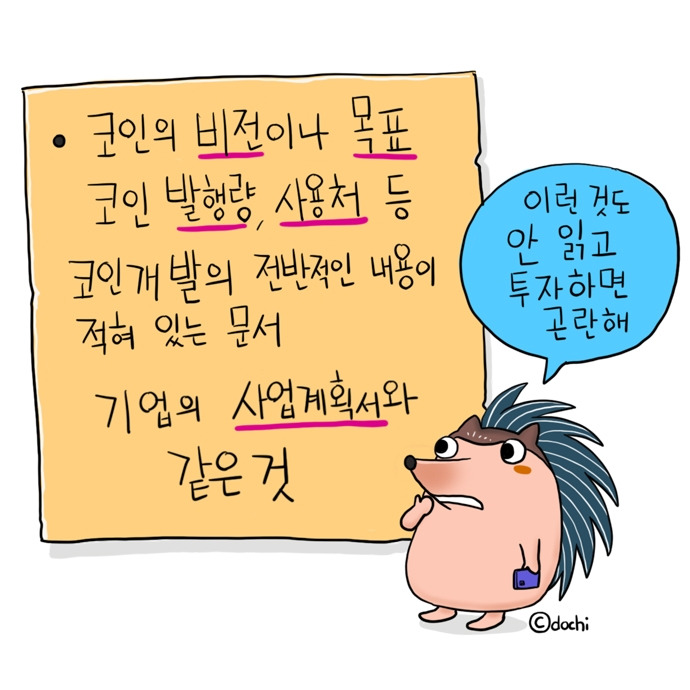 • 코인의 비전이나 목표
코인 발행량, 사용처 등
코인개발의 전반적인 내용이
적혀 있는 문서
기업의 사업계획서와
같은 것
이런 것도
안 읽고
투자하면
곤란해
©dochi